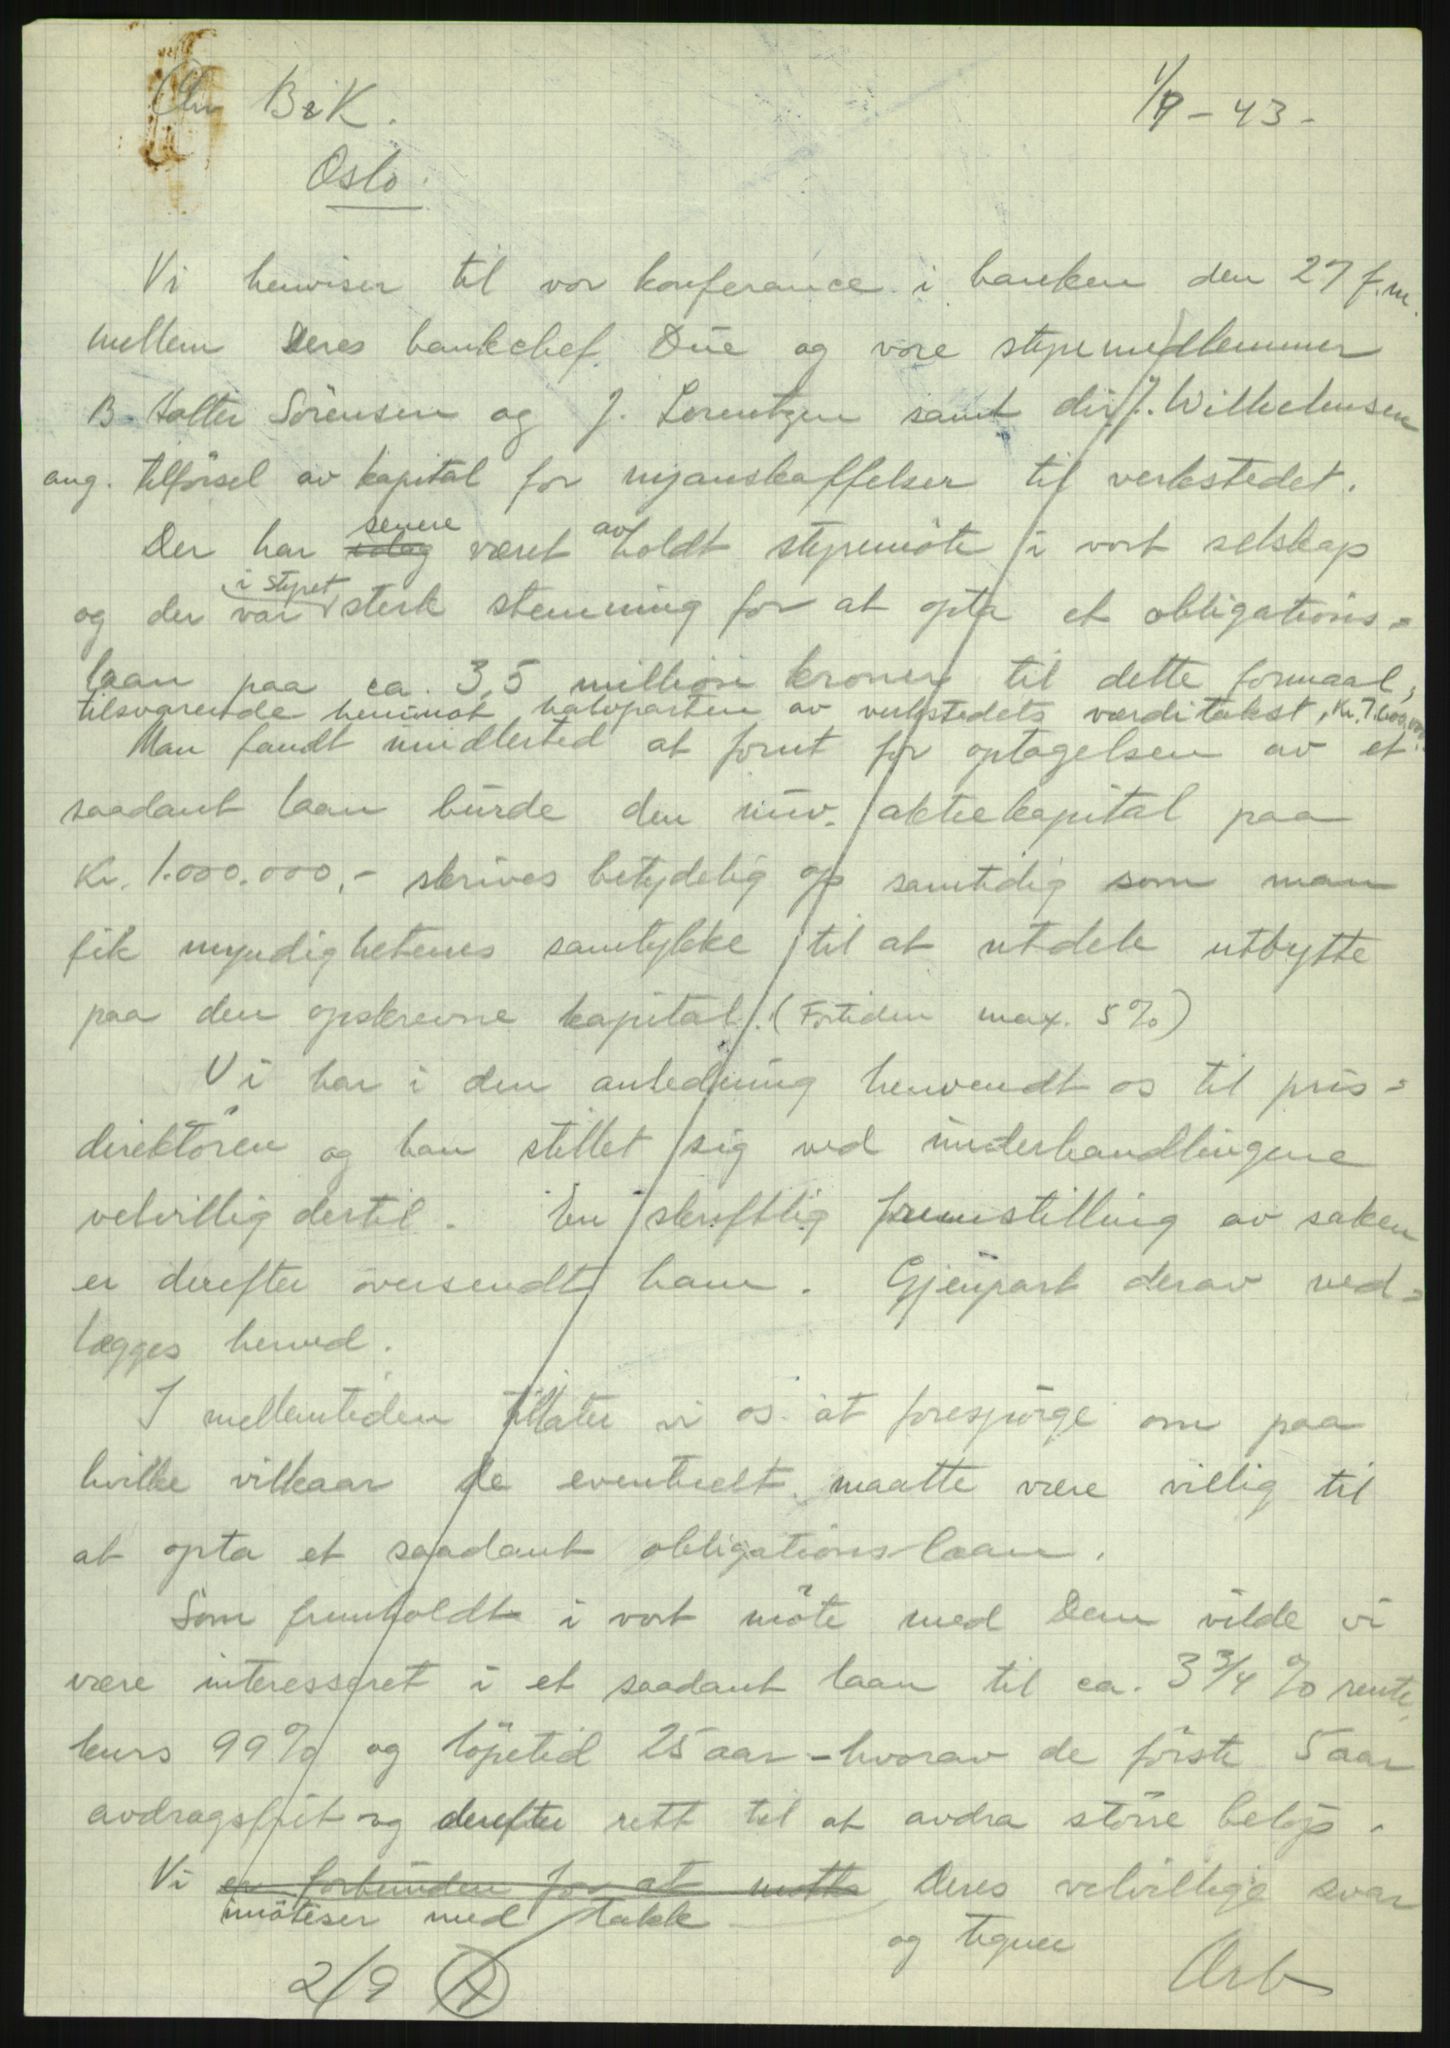 Chr B&K.
1/9 - 43 -
Oslo.
Vi henviser til vor konferance i banken den 27 f.m.
mellem Deres bankchef Due og vore styremedlemmer
B. Holter Sörensen og J. Lorentzen samt dir. J. Wilhelmsen
ang. tilförsel av kapital for nyanskaffelser til verkstedet.
senere
Der har idag været avholdt styremöte i vort selskap
i styret
og der var sterk stemning for at opta et obligations=
laan paa ca. 3,5 million kroner til dette formaal,
tilsvarende henimot halvparten av verkstedets værditakst, Kr. 7.600.000.
Man fandt imidlertid at forut for optagelsen av et
saadant laan burde den nuv. aktiekapital paa
Kr. 1.000.000,- skrives betydelig op samtidig som man
fik myndighetenes samtykke til at utdele utbytte
paa den opskrevne kapital. (Fortiden max. 5%)
Vi har i den anledning henvendt os til pris=
direktören og han stillet sig ved underhandlingene
velvillig dertil. En skriftlig fremstilling av saken
er derefter oversendt ham. Gjenpart derav ved=
lægges herved.
I mellemtiden tillater vi os at forespörge om paa
hvilke vilkaar De eventuelt maatte være villig til
at opta et saadant obligationslaan.
Som fremholdt i vort möte med Dem vilde vi
være interesseret i et saadant laan til ca. 3 3/4 % rente,
kurs 99% og löpetid 25 aar - hvorav de förste 5 aar
avdragsfrit og derefter rett til at avdra större belöp.
Vi er forbunden for at motta Deres velvillige svar
imöteser med takk
og tegner
2/9